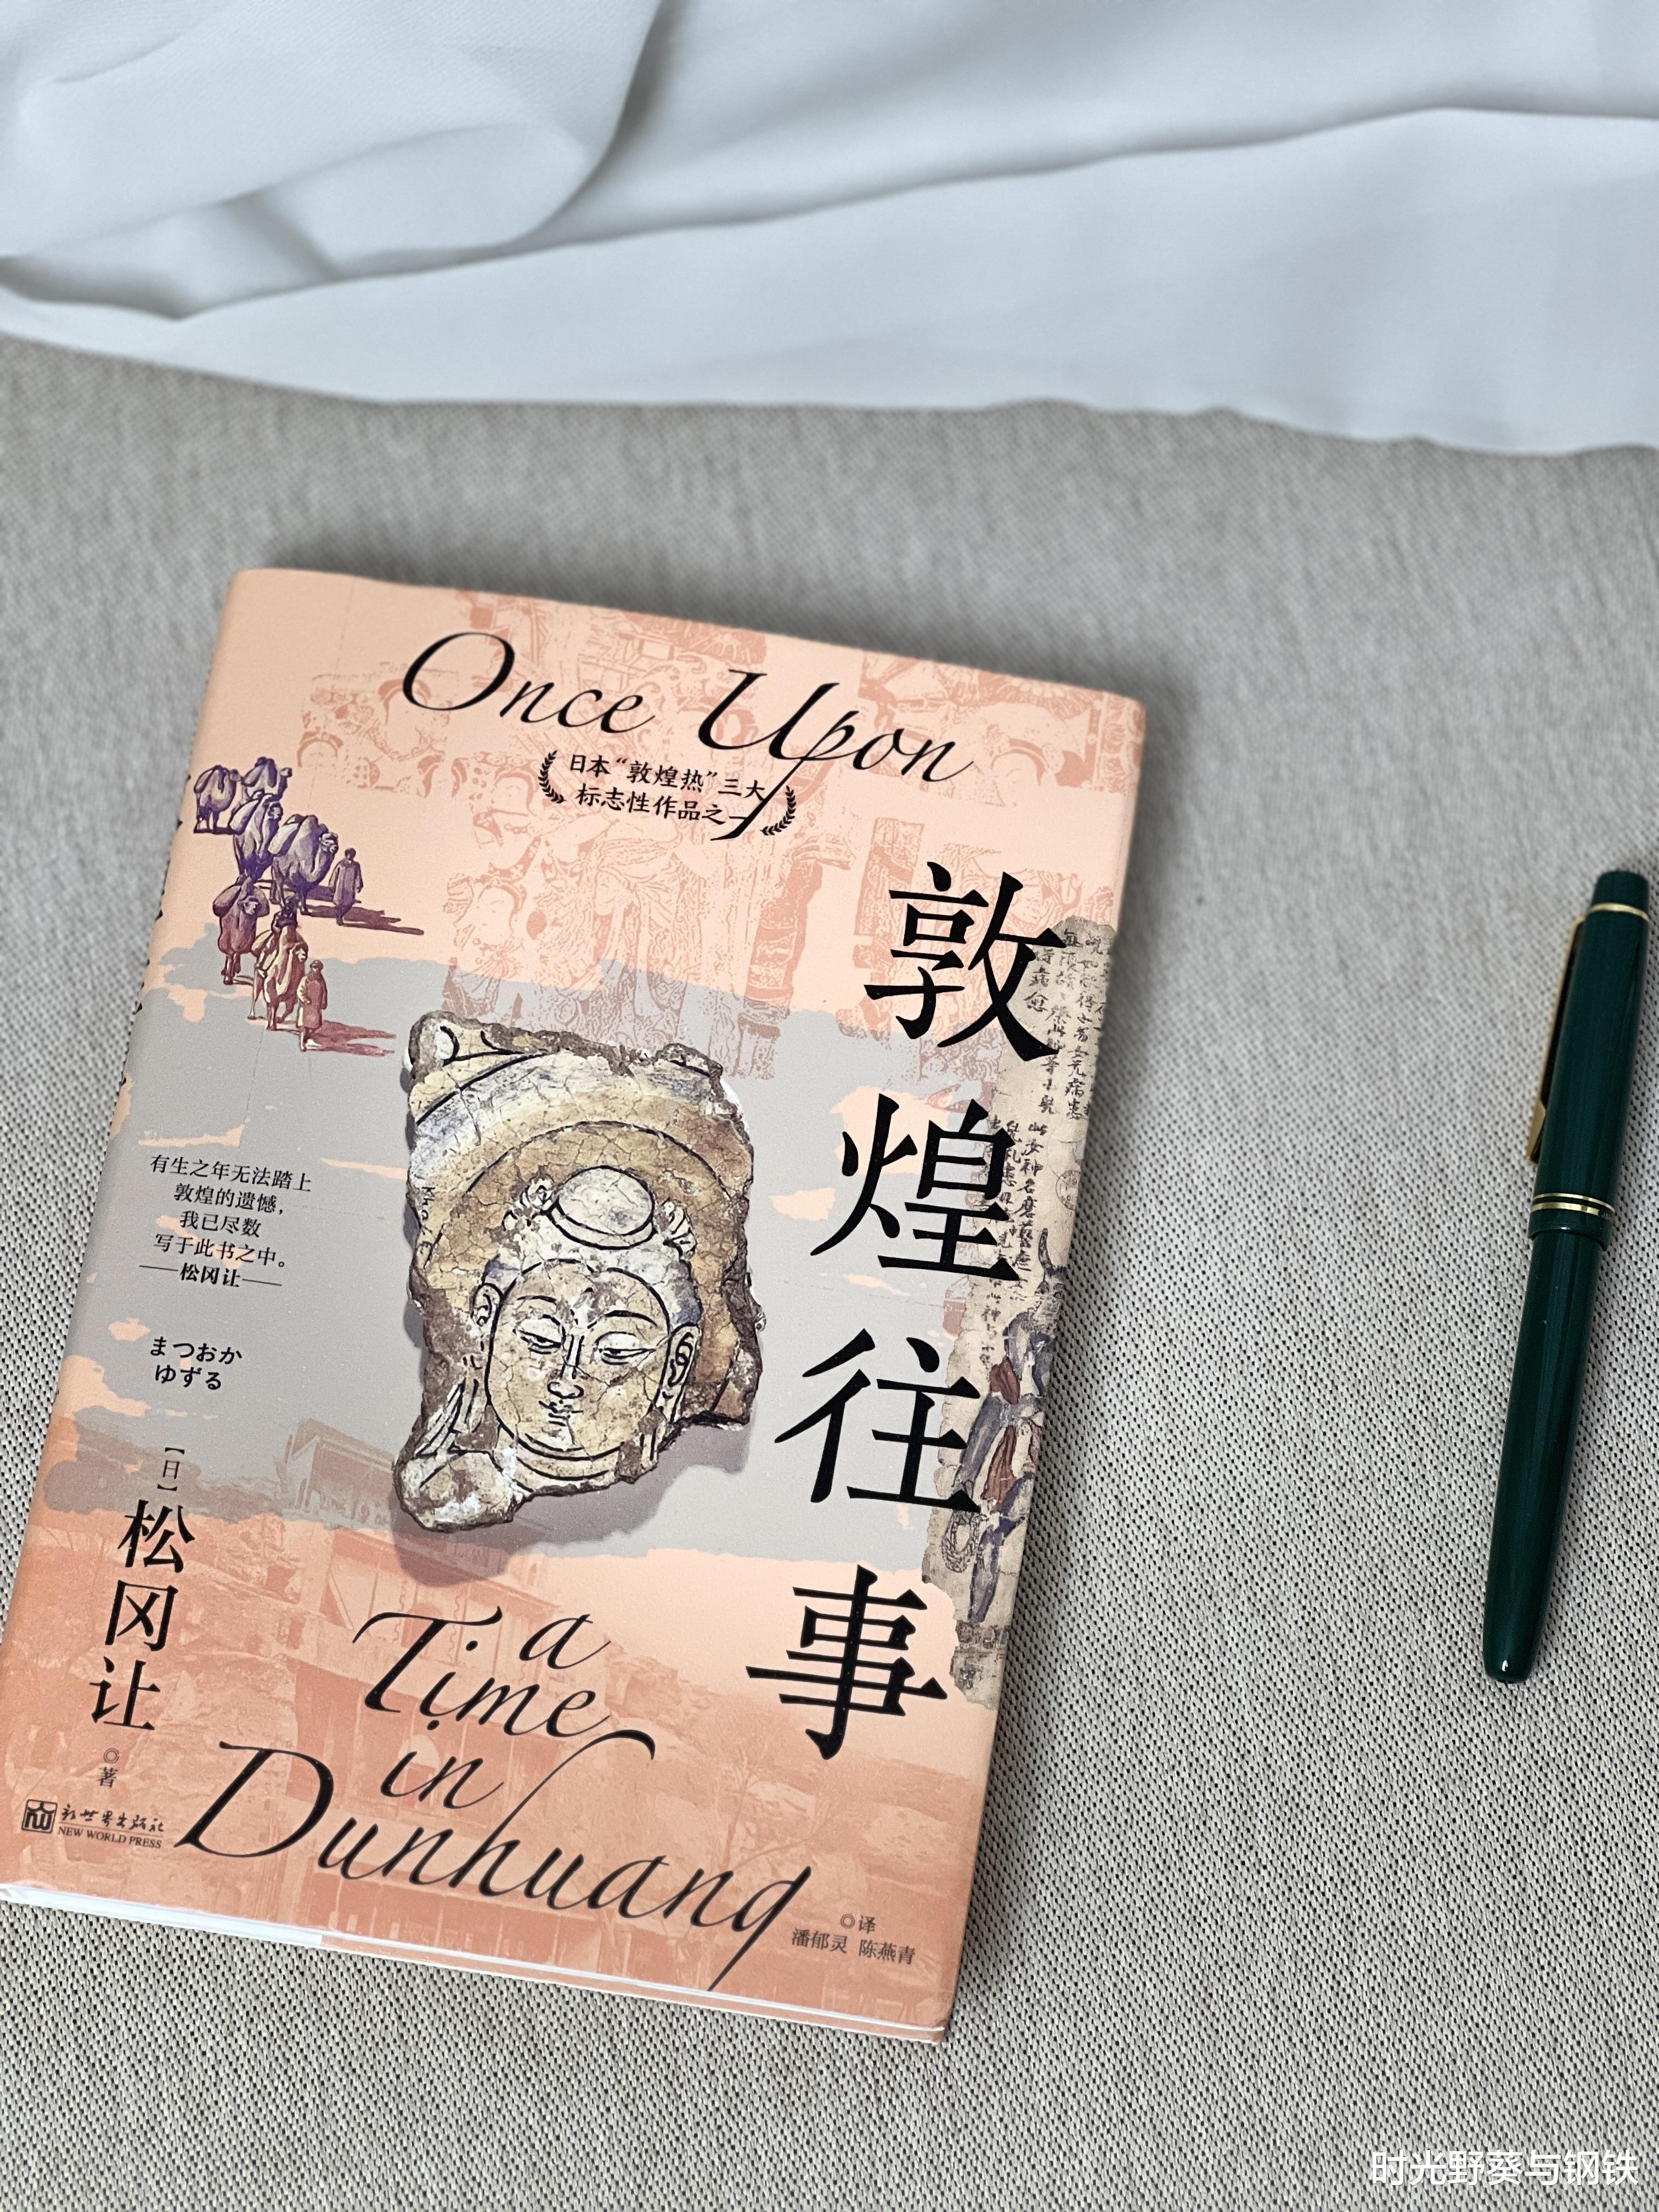 Once Upon
日本“敦煌热”三大
标志性作品之一
敦煌往事
有生之年无法踏上
敦煌的遗憾，
我已尽数
写于此书之中。
——松冈让——
まつおか
ゆずる
【日】
松冈让
◎著
a
Time
in
Dunhuang
新世界出版社
NEW WORLD PRESS
◎译
潘郁灵 陈燕青
时光野葵与钢铁